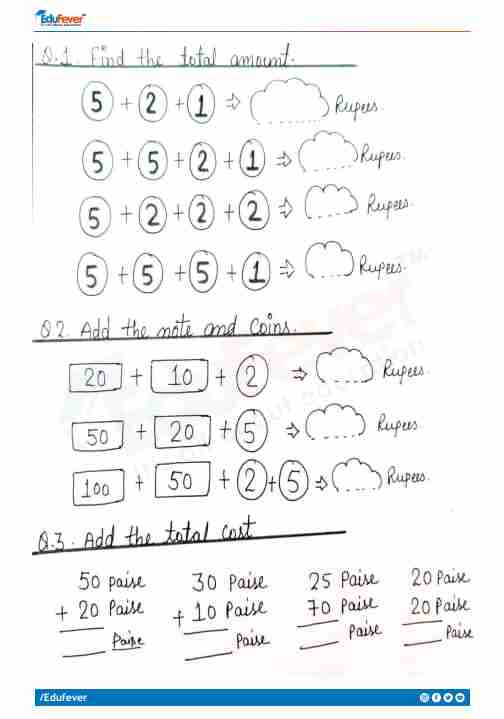 EduFever
Q.1. Find the total amount.
5 + 2 + 1 ⇒ ........ Rupees.
5 + 5 + 2 + 1 ⇒ ..... Rupees.
5 + 2 + 2 + 2 ⇒ .... Rupees.
5 + 5 + 5 + 1 ⇒ .... Rupees.
Q 2. Add the note and coins.
20 + 10 + 2 ⇒ .... Rupees.
50 + 20 + 5 ⇒ .... Rupees.
100 + 50 + 2 + 5 ⇒ .... Rupees.
Q.3. Add the total cost
50 Paise 30 Paise 25 Paise 20 Paise
+ 20 Paise + 10 Paise 70 Paise 20 Paise
___ Paise ___ Paise ___ Paise ___ Paise
/Edufever